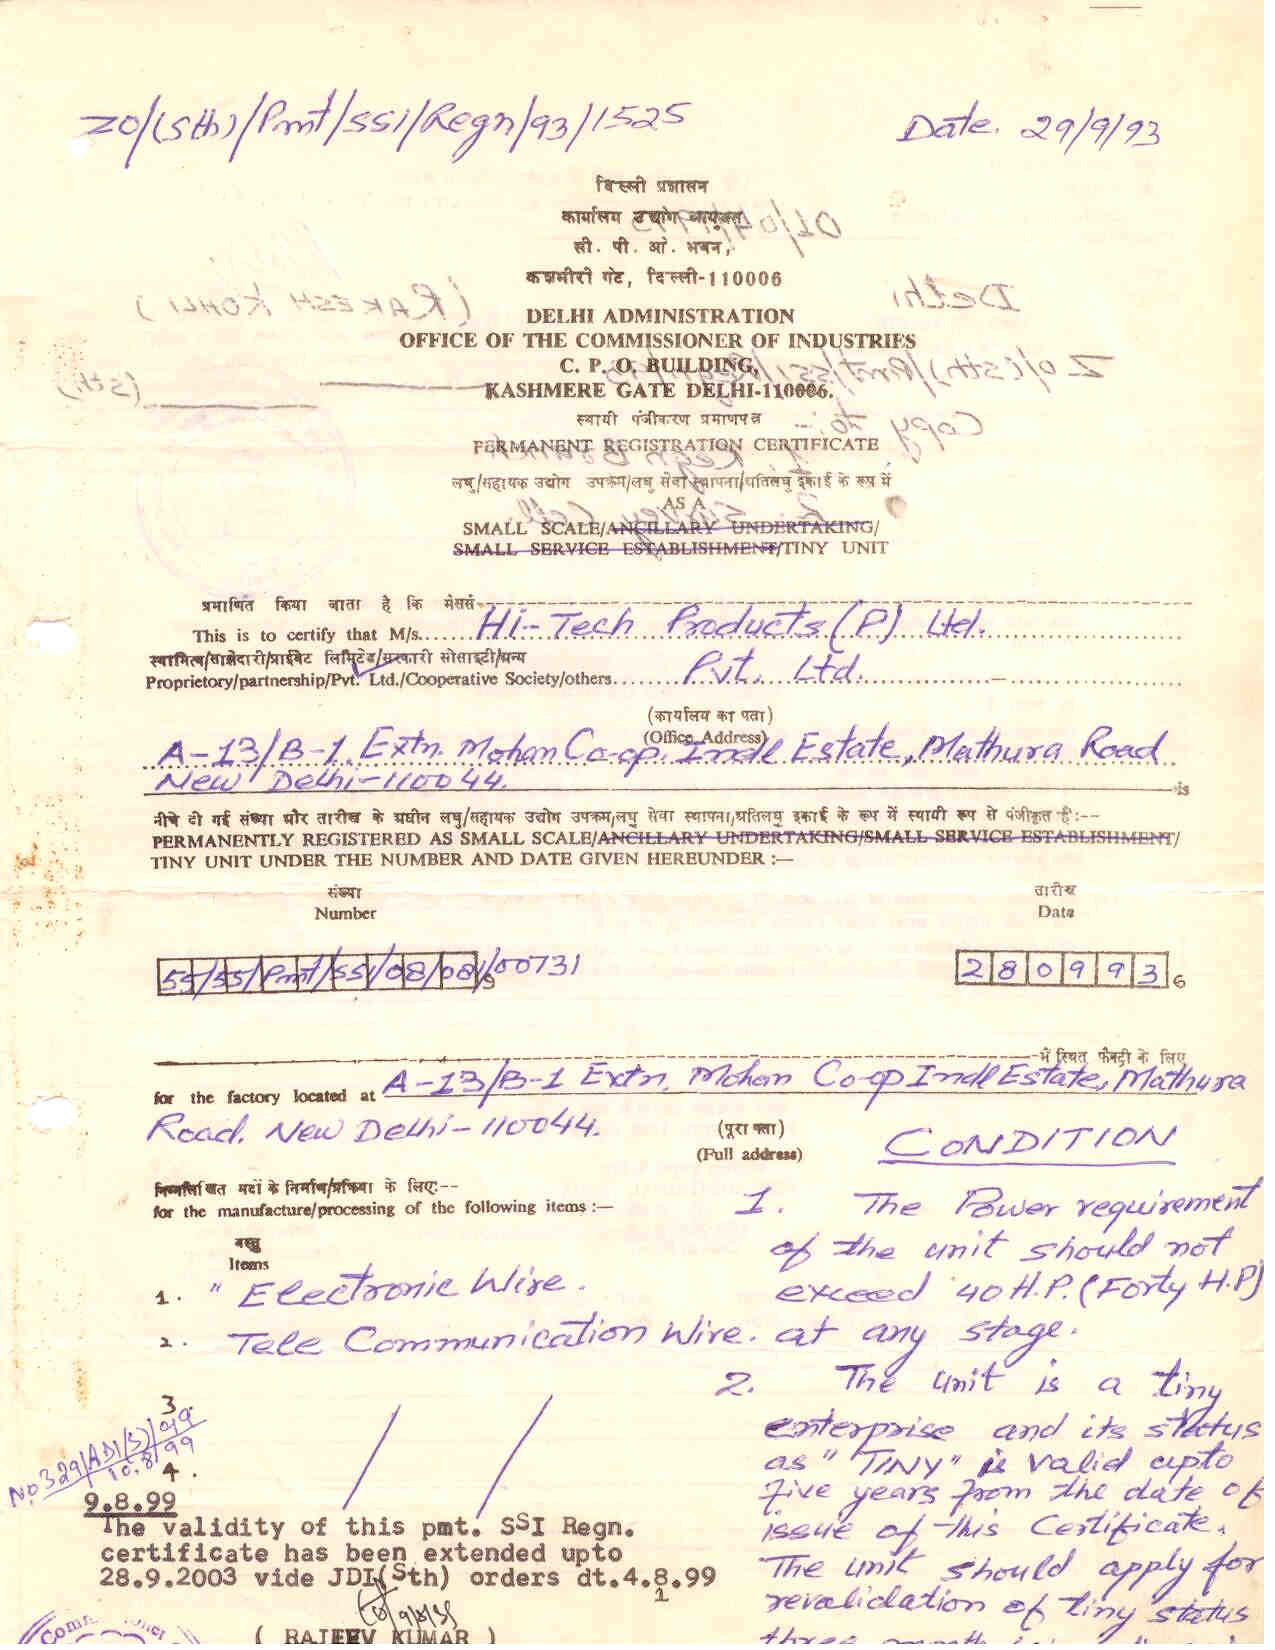 ZO/(Sth)/Pmt/SSI/Regn/93/1525 Date. 29/9/93
दिल्ली प्रशासन
कार्यालय उद्योग आयुक्त
सी. पी. ओ. भवन,
कश्मीरी गेट, दिल्ली-110006
DELHI ADMINISTRATION
OFFICE OF THE COMMISSIONER OF INDUSTRIES
C. P. O. BUILDING,
KASHMERE GATE DELHI-110006.
स्थायी पंजीकरण प्रमाणपत्र
PERMANENT REGISTRATION CERTIFICATE
लघु/सहायक उद्योग उपक्रम/लघु सेवा स्थापना/अतिलघु इकाई के रूप में
AS A
SMALL SCALE/ANCILLARY UNDERTAKING/
SMALL SERVICE ESTABLISHMENT/TINY UNIT
प्रमाणित किया जाता है कि मेसर्स
This is to certify that M/s....... Hi-Tech Products (P) Ltd.
स्वामित्व/साझेदारी/प्राईवेट लिमिटेड/सरकारी सोसाइटी/अन्य
Proprietory/partnership/Pvt. Ltd./Cooperative Society/others........ Pvt. Ltd.
(कार्यालय का पता)
(Office Address)
A-13/B-1, Extn. Mohan Co-op. Indl Estate, Mathura Road
New Delhi-110044. is
नीचे दी गई संख्या और तारीख के अधीन लघु/सहायक उद्योग उपक्रम/लघु सेवा स्थापना/अतिलघु इकाई के रूप में स्थायी रूप से पंजीकृत है:--
PERMANENTLY REGISTERED AS SMALL SCALE/ANCILLARY UNDERTAKING/SMALL SERVICE ESTABLISHMENT/
TINY UNIT UNDER THE NUMBER AND DATE GIVEN HEREUNDER :—
संख्या तारीख
Number Date
55/55/Pmt/SSI/08/08/00731 280993
में स्थित फैक्ट्री के लिए
for the factory located at A-13/B-1 Extn, Mohan Co-op Indl Estate, Mathura
Road. New Delhi-110044.
(पूरा पता)
(Full address)
निम्नलिखित मदों के निर्माण/प्रक्रिया के लिए:--
for the manufacture/processing of the following items :—
वस्तु
Items
1. " Electronic Wire.
2. Tele Communication Wire.
3.
4.
No 329/ADI/S)/99
10.8/99
9.8.99
The validity of this pmt. SSI Regn.
certificate has been extended upto
28.9.2003 vide JDI(Sth) orders dt.4.8.99
( RAJEEV KUMAR )
CONDITION
1. The Power requirement
of the unit should not
exceed 40 H.P. (Forty H.P)
at any stage.
2. The unit is a tiny
enterprise and its status
as "TINY" is valid upto
five years from the date of
issue of this Certificate.
The unit should apply for
revalidation of tiny status
three month